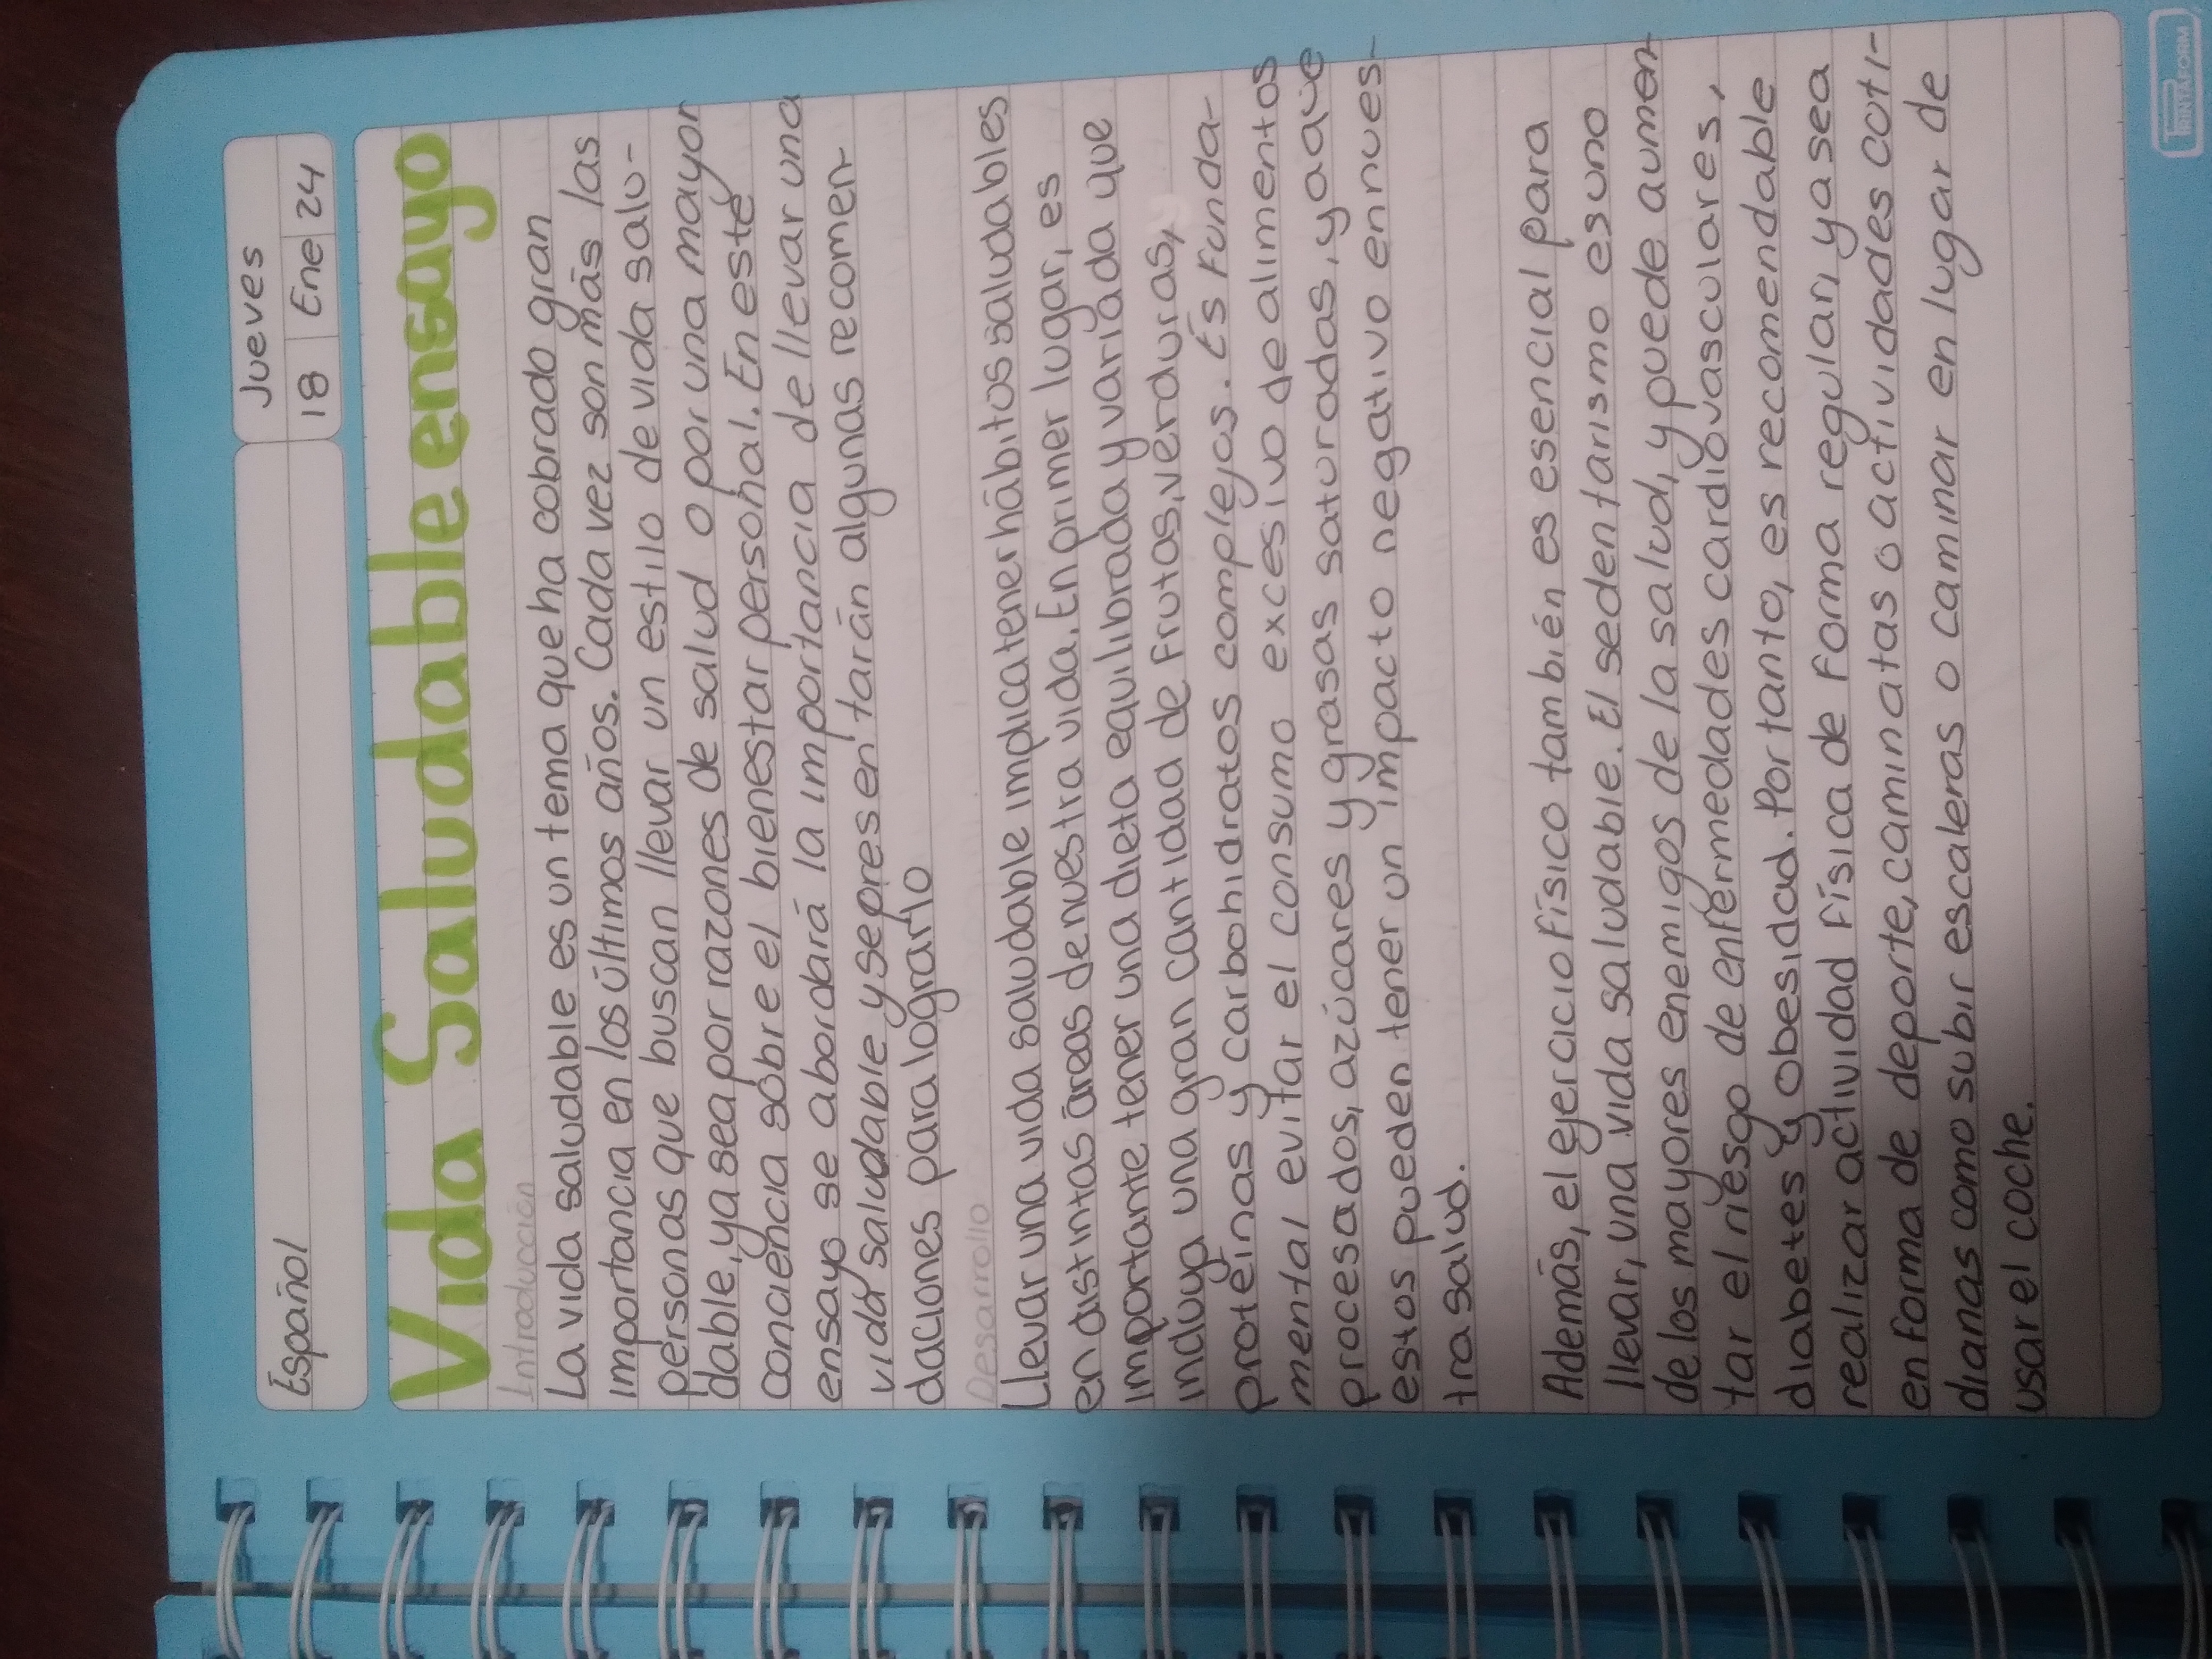 Español
Jueves
18 Ene 24
Vida Saludable ensayo
Introducción
La vida saludable es un tema que ha cobrado gran
importancia en los últimos años. Cada vez son más las
personas que buscan llevar un estilo de vida salu-
dable, ya sea por razones de salud o por una mayor
conciencia sobre el bienestar personal. En este
ensayo se abordará la importancia de llevar una
vida saludable y se presentarán algunas recomen-
daciones para lograrlo
Desarrollo
Llevar una vida saludable implica tener hábitos saludables
en distintas áreas de nuestra vida. En primer lugar, es
importante tener una dieta equilibrada y variada que
incluya una gran cantidad de frutos, verduras,
proteínas y carbohidratos complejos. Es funda-
mental evitar el consumo excesivo de alimentos
procesados, azúcares y grasas saturadas, ya que
estos pueden tener un impacto negativo en nues-
tra salud.
Además, el ejercicio físico también es esencial para
llevar, una vida saludable. El sedentarismo es uno
de los mayores enemigos de la salud, y puede aumen-
tar el riesgo de enfermedades cardiovasculares,
diabetes y obesidad. Por tanto, es recomendable
realizar actividad física de forma regular, ya sea
en forma de deporte, caminatas o actividades coti-
dianas como subir escaleras o caminar en lugar de
usar el coche.
PRINTAFORM